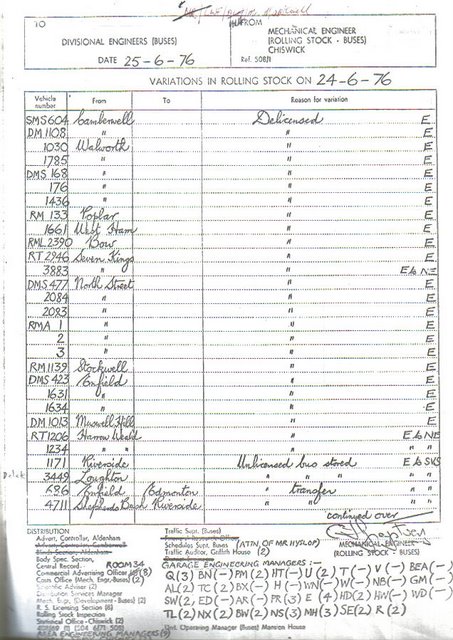 TO
FROM
DIVISIONAL ENGINEERS (BUSES)
MECHANICAL ENGINEER
(ROLLING STOCK - BUSES)
CHISWICK
DATE 25-6-76
Ref. 508/1
VARIATIONS IN ROLLING STOCK ON 24-6-76
Vehicle number From To Reason for variation
SMS 604 Camberwell Delicensed E
DM 1108 " " E
1030 Walworth " E
1785 " " E
DMS 168 " " E
176 " " E
1436 " " E
RM 133 Poplar " E
1661 West Ham " E
RML 2390 Bow " E
RT 2946 Seven Kings " E
3883 " " E to NE
DMS 477 North Street " E
2084 " " E
2083 " " E
RMA 1 " " E
2 " " E
3 " " E
RM 1139 Stockwell " E
DMS 423 Enfield " E
1631 " " E
1634 " " E
DM 1013 Muswell Hill " E
RT 1206 Harrow Weald " E to NE
1234 " " " " "
1171 Riverside Unlicensed bus stored E to SKS
3449 Loughton " " " " "
686 Enfield Edmonton " transfer " "
4711 Shepherds Bush Riverside " " "
continued over
MECHANICAL ENGINEER
(ROLLING STOCK - BUSES)
DISTRIBUTION
Advert. Controller, Aldenham
Body Sect.
Central Record. ROOM 34
Commercial Advertising Officer (8)
Costs Office (Mech. Engr. Buses) (2)
Services Manager
Mech. Engr. (Development - Buses) (2)
R. S. Licensing Section (6)
Rolling Stock Inspection
Statistical Office - Chiswick (2)
AREA ENGINEERING MANAGERS (9)
Traffic Supt. (Buses)
Schedules Supt. Buses (ATTN. OF MR HYSLOP)
Traffic Auditor, Griffith House (2)
GARAGE ENGINEERING MANAGERS :-
Q(3) BN(-) PM(2) HT(-) U(2) T(-) V(-) BEA(-)
AL(2) TC(2) BX(-) H(-) WN(-) W(-) NB(-) GM(-)
SW(2) ED(-) AR(-) PR(3) E(4) HD(2) HW(-) WD(-)
TL(2) NX(2) BW(2) NS(3) MH(3) SE(2) R(2)
Operating Manager (Buses) Mansion House